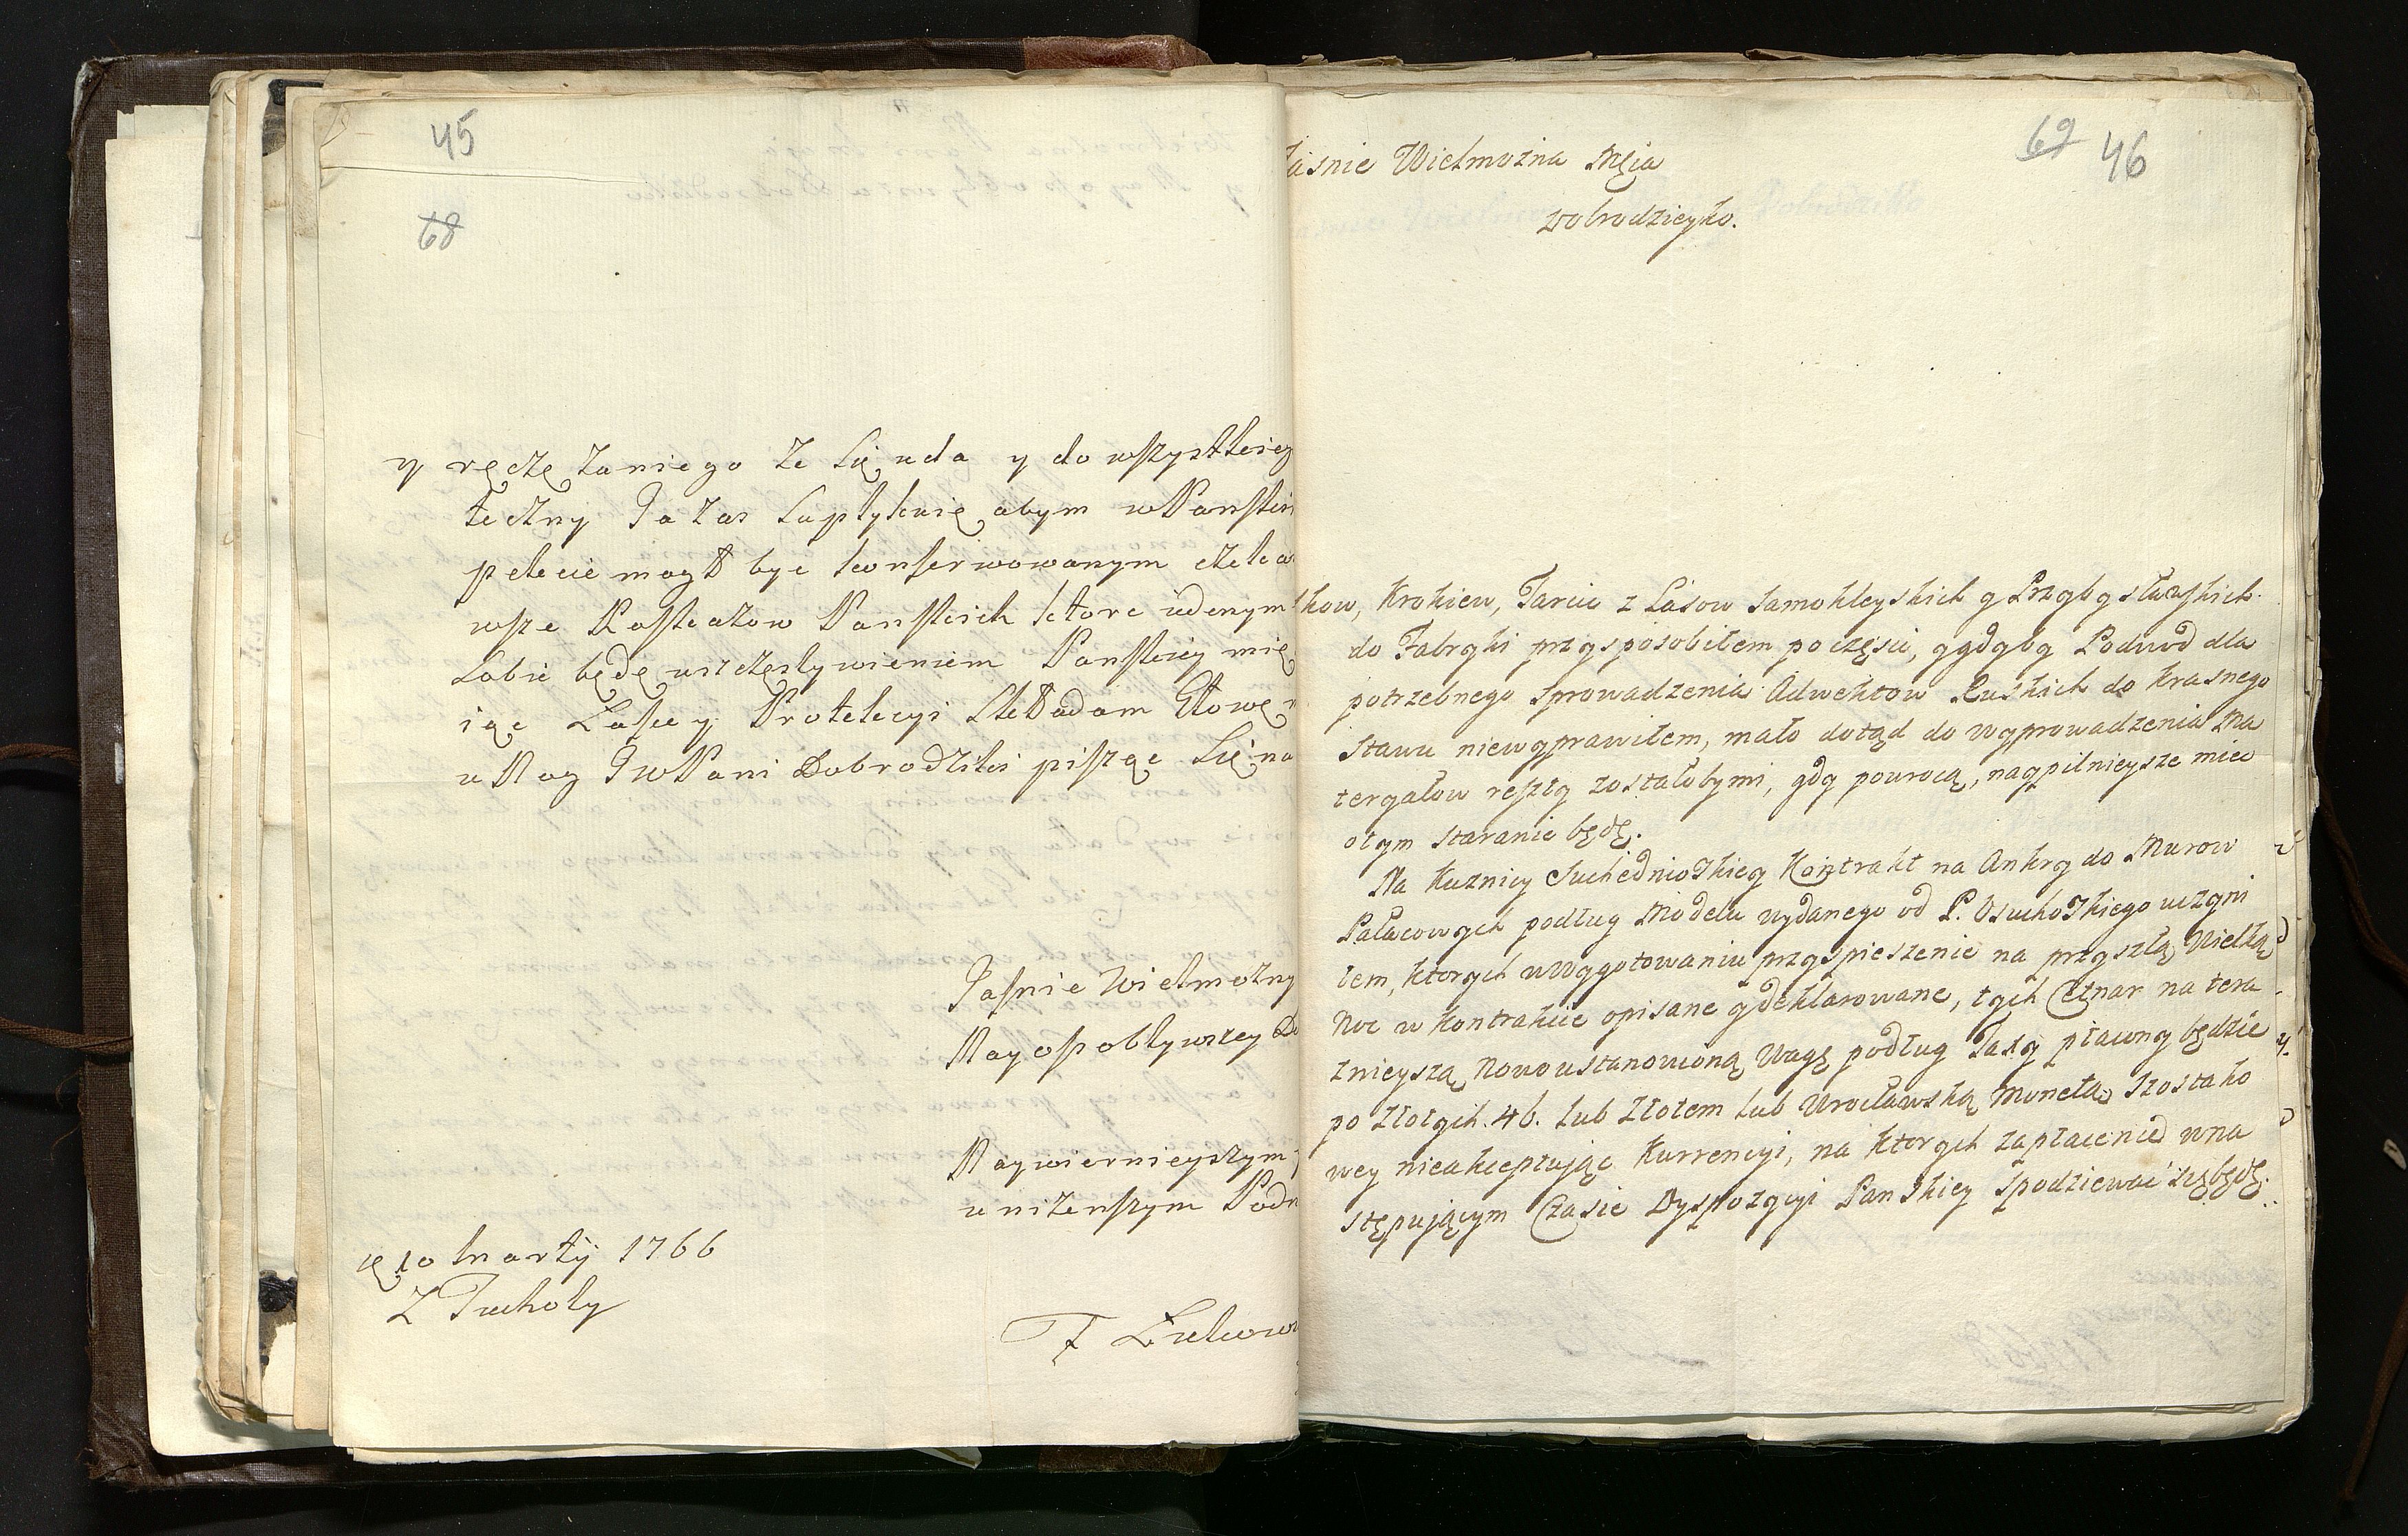 45
68
y ręczę zaniego że się uda y do wszystkiey
teczny Ja zas suplykuię abym w Panski
pekcie mogł byc konserwowanym
wsze Roskazow Panskich ktore
sobie będę uszczęslywieniem Panskiey
iąc Lasce y Protekcyi Składam Głowę
u Nog JwPani Dobrodziki pisząc się na
Jasnie Wielmozny
Nayosoblywszey
Naywiernieyszym
unizenszym
10 Marty 1766
Z Tucholy
F
69 46
Jasnie Wielmozna Mscia
Dobrodzieyko.
kow, Krokiew, Taricc z Lasow Samokleyskich y Przybysławskich
do Fabryki przysposobiłem po części, y gdyby Podwod dla
potrzebnego sprowadzenia Adwektow Ruskich do Krasnego
Stawu niewyprawiłem, mało dotąd do wyprowadzenia Ma
teryałow reszty zostałobymi, gdy powrocą, naypilnieysze miec
otym staranie będę.
Na Kuznicy Suchedniowskiey Kontrakt na Ankry do Murow
Pałacowych podług Modelu wydanego od P. Osuchowskiego uczyni
łem, ktorych w Wygotowaniu przyspieszenie na przyszłą Wielką
Noc w Kontrakcie opisane y deklarowane, tych Cetnar na tera
znieyszą Nowoustanowioną Wagę podług Taxy płacony będzie
po Złotych. 46. lub Złotem lub Wrocławską Monetą Szostako
wey nieakceptując Kurrencyi, na ktorych zapłacenie wna
stępującym Czasie Dyspozycyi Panskiey spodziewac się będę.